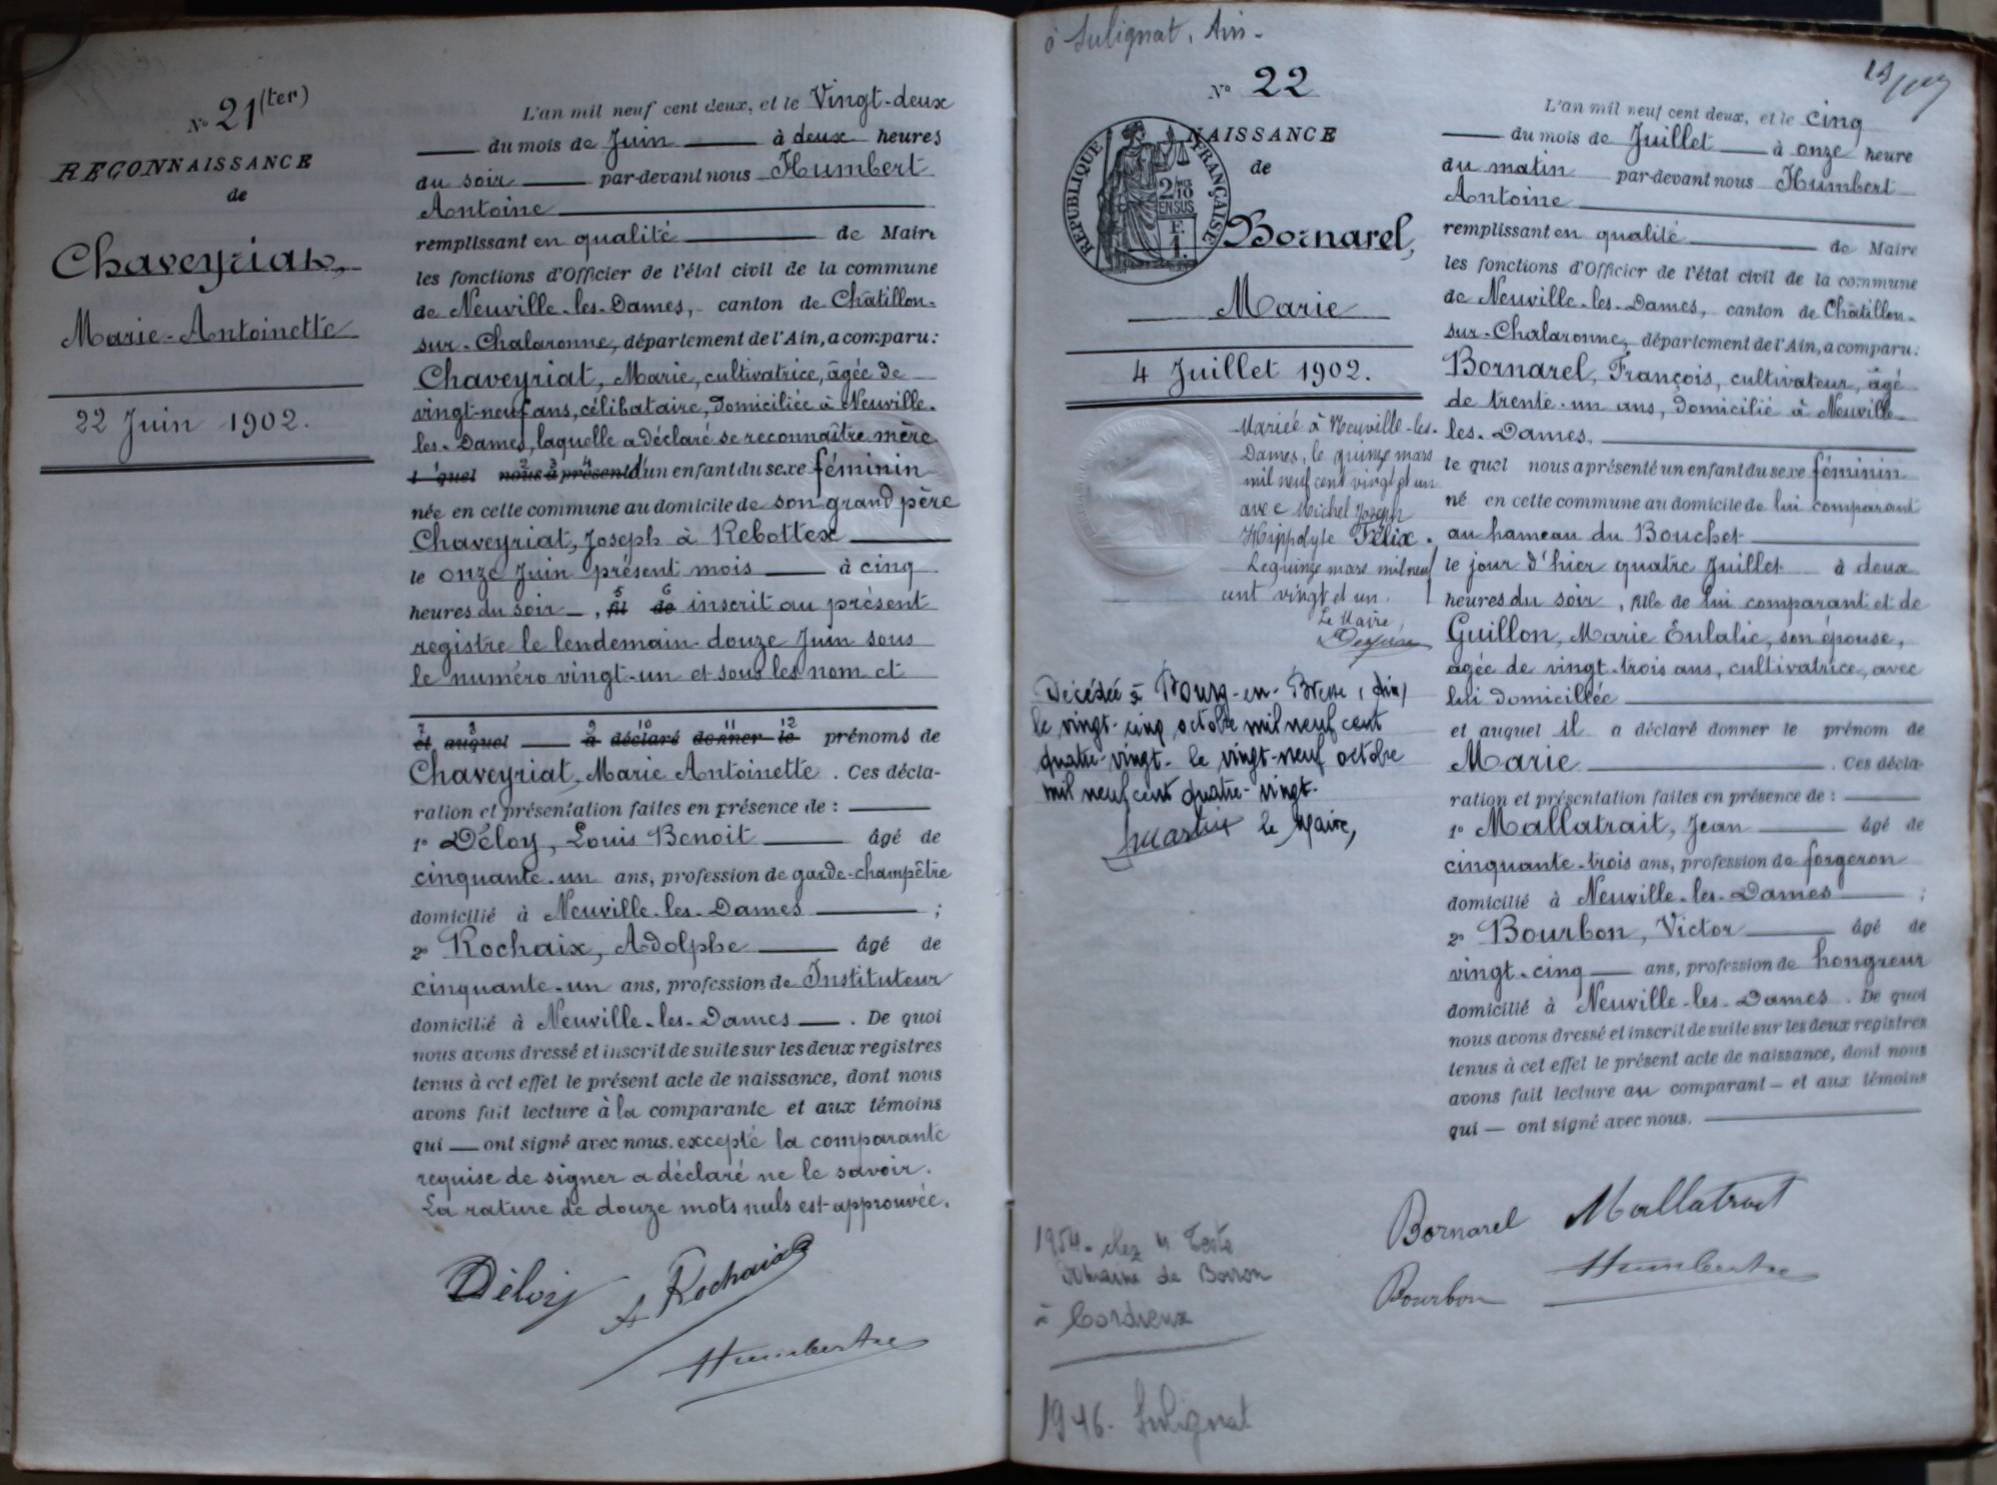 N° 21 (ter)
RECONNAISSANCE
de
Chaveyriat,
Marie-Antoinette
22 Juin 1902.
L'an mil neuf cent deux, et le Vingt-deux
du mois de Juin à deux heures
du soir par-devant nous Humbert
Antoine
remplissant en qualité de Maire
les fonctions d'Officier de l'état civil de la commune
de Neuville-les-Dames, canton de Châtillon-
sur-Chalaronne, département de l'Ain, a comparu:
Chaveyriat, Marie, cultivatrice, âgée de
vingt-neuf ans, célibataire, domiciliée à Neuville-
les-Dames, laquelle a déclaré se reconnaître mère
1 quel 2 nous 3 a 4 présenté d'un enfant du sexe féminin
née en cette commune au domicile de son grand père
Chaveyriat, Joseph à Rebottex
le onze Juin présent mois à cinq
heures du soir, 5 fil 6 de inscrit au présent
registre le lendemain douze Juin sous
le numéro vingt-un et sous les nom et
7 et 8 auquel 9 a 10 déclaré 11 donner 12 le prénoms de
Chaveyriat, Marie Antoinette. Ces décla-
ration et présentation faites en présence de :
1° Déloy, Louis Benoit âgé de
cinquante-un ans, profession de garde-champêtre
domicilié à Neuville-les-Dames ;
2° Rochaix, Adolphe âgé de
cinquante-un ans, profession de Instituteur
domicilié à Neuville-les-Dames. De quoi
nous avons dressé et inscrit de suite sur les deux registres
tenus à cet effet le présent acte de naissance, dont nous
avons fait lecture à la comparante et aux témoins
qui ont signé avec nous. excepté la comparante
requise de signer a déclaré ne le savoir.
La rature de douze mots nuls est approuvée.
Déloy
A Rochaix
Humbert Ane
à Sulignat, Ain-
N° 22
NAISSANCE
de
RÉPUBLIQUE FRANÇAISE
2/10
EN SUS
F.
1.
Bornarel,
Marie
4 Juillet 1902.
Mariée à Neuville-les-
Dames, le quinze mars
mil neuf cent vingt et un
avec Michel Joseph
Hippolyte Félix.
Le quinze mars mil neuf
cent vingt et un.
Le Maire,
Décédée à Bourg-en-Bresse (Ain)
le vingt-cinq octobre mil neuf cent
quatre-vingt. le vingt-neuf octobre
mil neuf cent quatre-vingt.
le Maire,
1954- chez M
Domaine de
à Cordieux
1946- Sulignat
L'an mil neuf cent deux, et le cinq
du mois de Juillet à onze heure
du matin par-devant nous Humbert
Antoine
remplissant en qualité de Maire
les fonctions d'Officier de l'état civil de la commune
de Neuville-les-Dames, canton de Châtillon-
sur-Chalaronne, département de l'Ain, a comparu:
Bornarel, François, cultivateur, âgé
de trente-un ans, domicilié à Neuville-
les-Dames,
le quel nous a présenté un enfant du sexe féminin
né en cette commune au domicile de lui comparant
au hameau du Bouchet
le jour d'hier quatre Juillet à deux
heures du soir, fille de lui comparant et de
Guillon, Marie Eulalie, son épouse,
âgée de vingt-trois ans, cultivatrice, avec
lui domiciliée
et auquel il a déclaré donner le prénom de
Marie. Ces décla-
ration et présentation faites en présence de :
1° Mallatrait, Jean âgé de
cinquante-trois ans, profession de forgeron
domicilié à Neuville-les-Dames ;
2° Bourbon, Victor âgé de
vingt-cinq ans, profession de hongreur
domicilié à Neuville-les-Dames. De quoi
nous avons dressé et inscrit de suite sur les deux registres
tenus à cet effet le présent acte de naissance, dont nous
avons fait lecture au comparant et aux témoins
qui ont signé avec nous.
Bornarel Mallatrait
Bourbon Humbert Ane